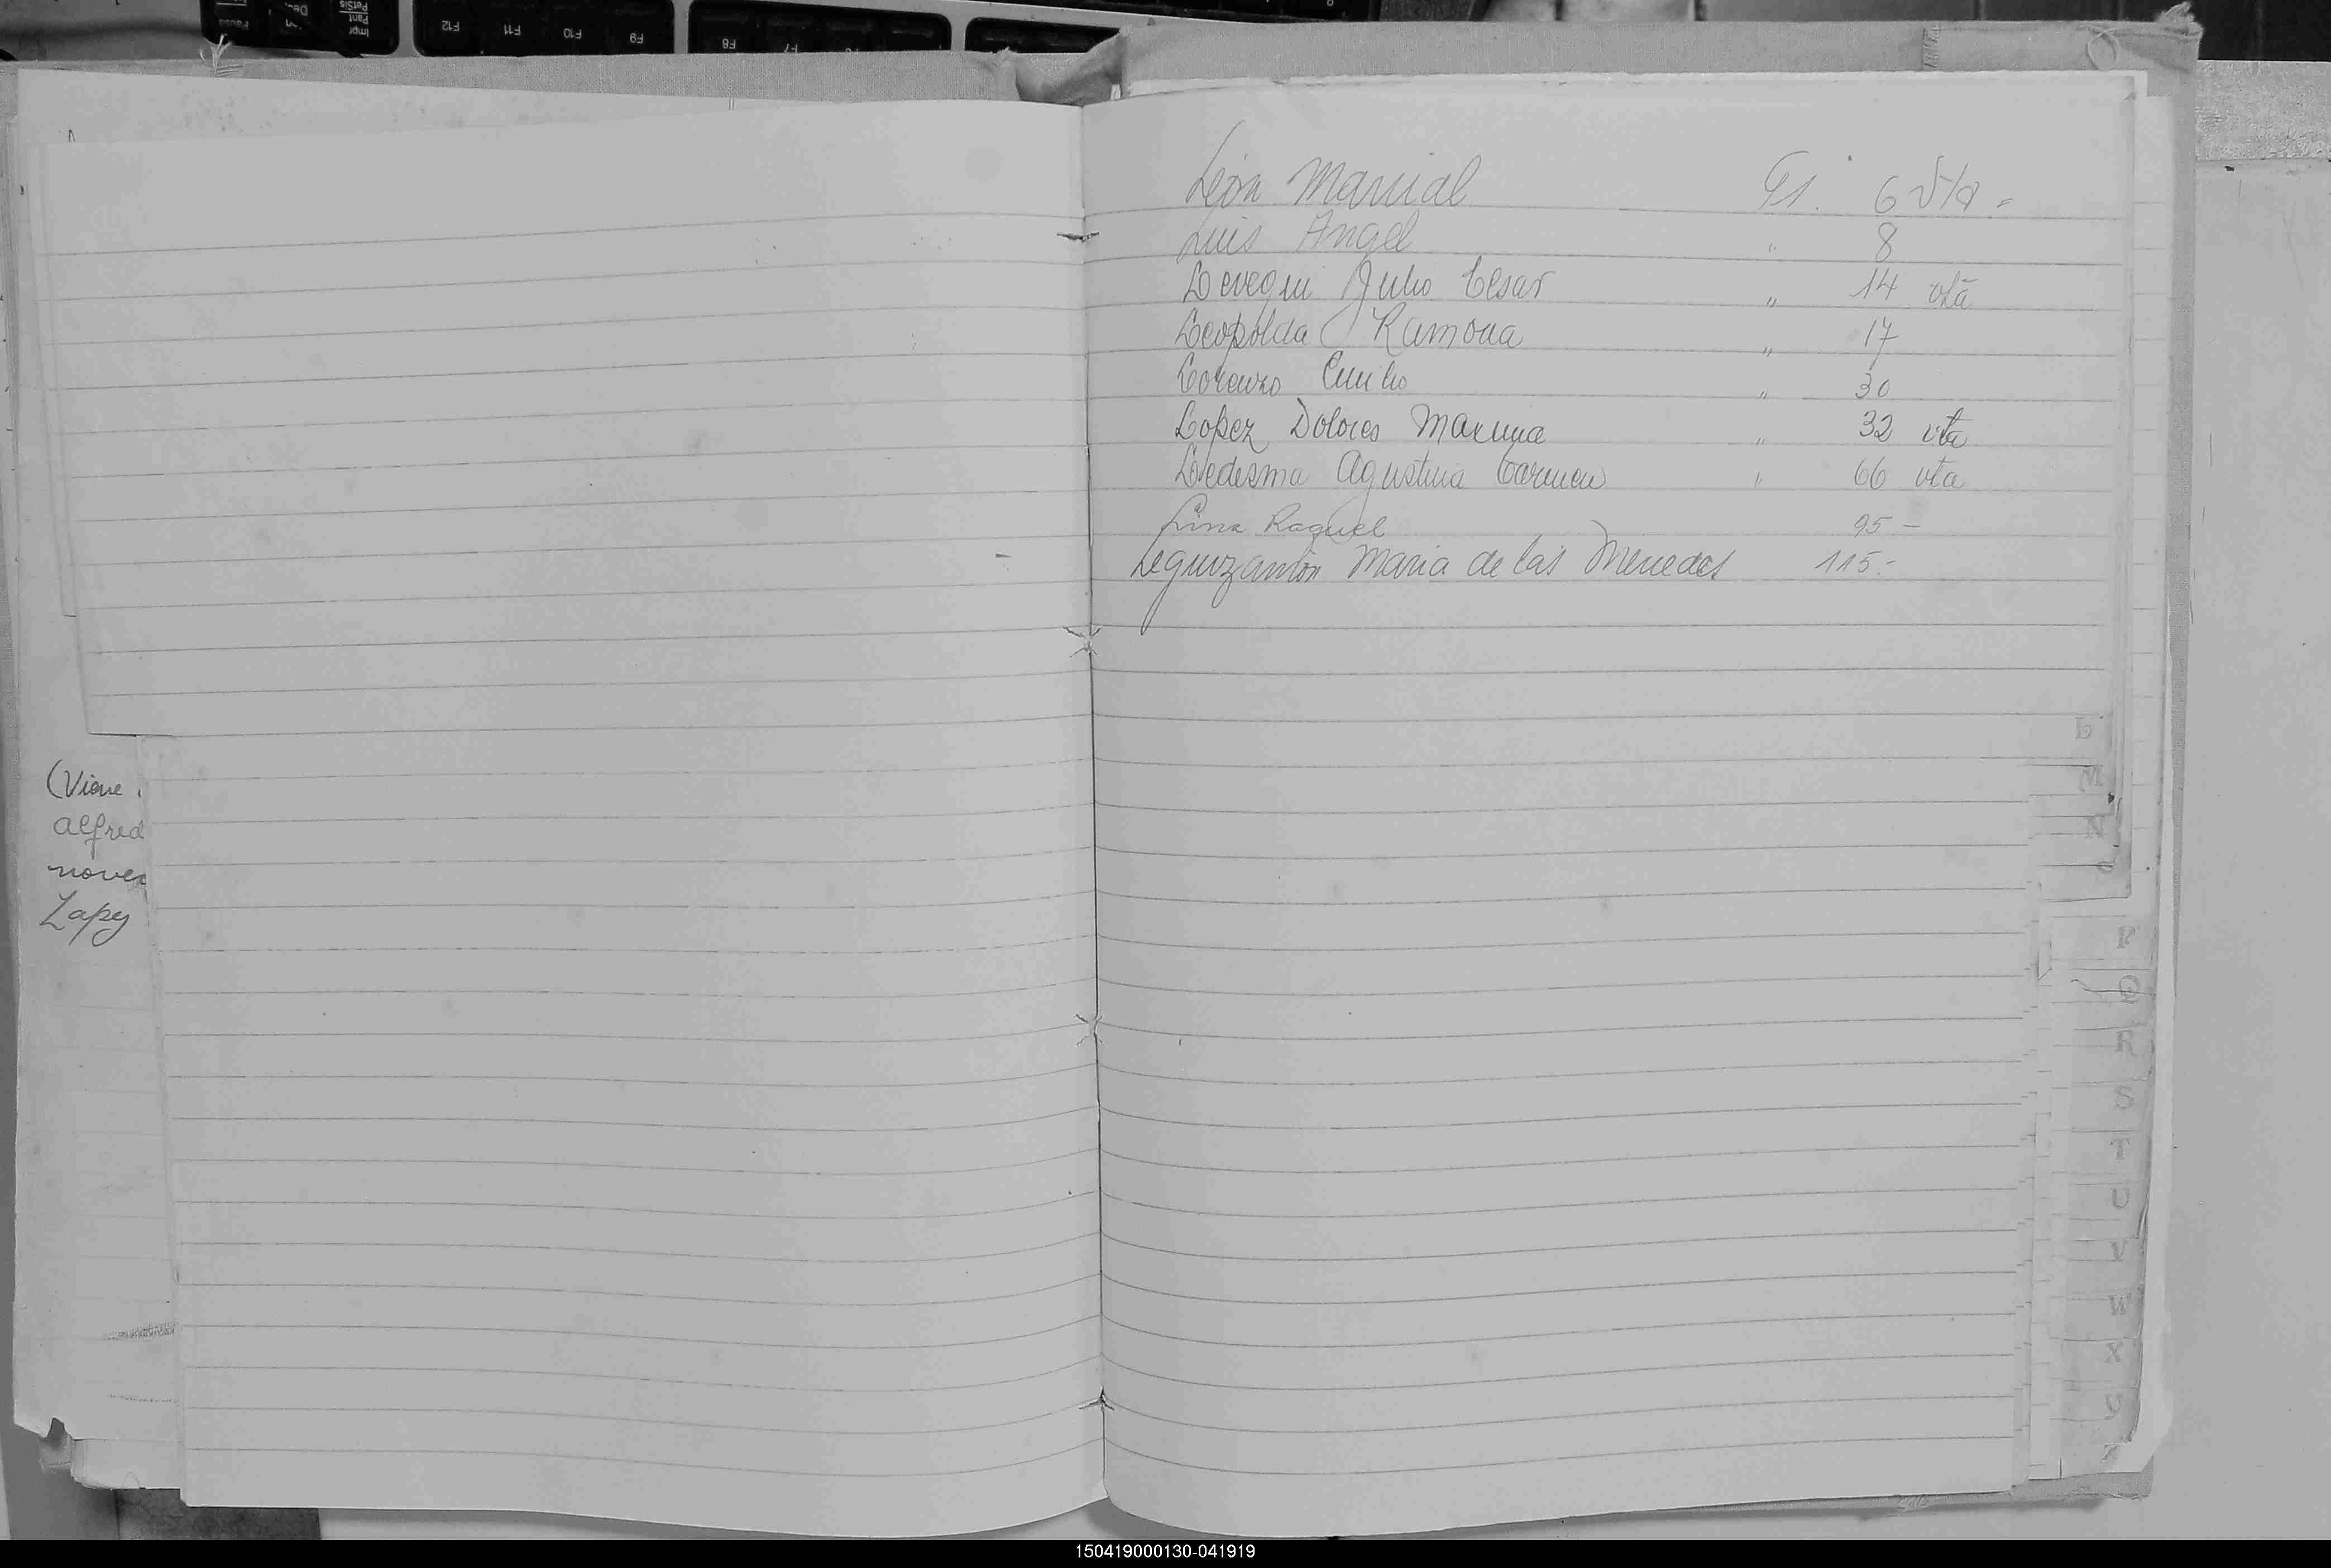 León Marcial Fs. 6 Vta.-
Luis Angel " 8
Levequi Julio Cesar " 14 vta
Leopolda Ramona " 17
Lorenzo Emilio " 30
Lopez Dolores Maxima " 32 vta
Ledesma Agustina Carmen " 66 vta
Lina Raquel 95 -
Leguizamón Maria de las Mercedes 115.-
(Viene
alfred
novea
Zapy
L
M
N
O
P
Q
R
S
T
U
V
W
X
Y
Z
F12 F11 F10 F9 F8 F7
Impr Pant PetSis
Pausa
150419000130-041919